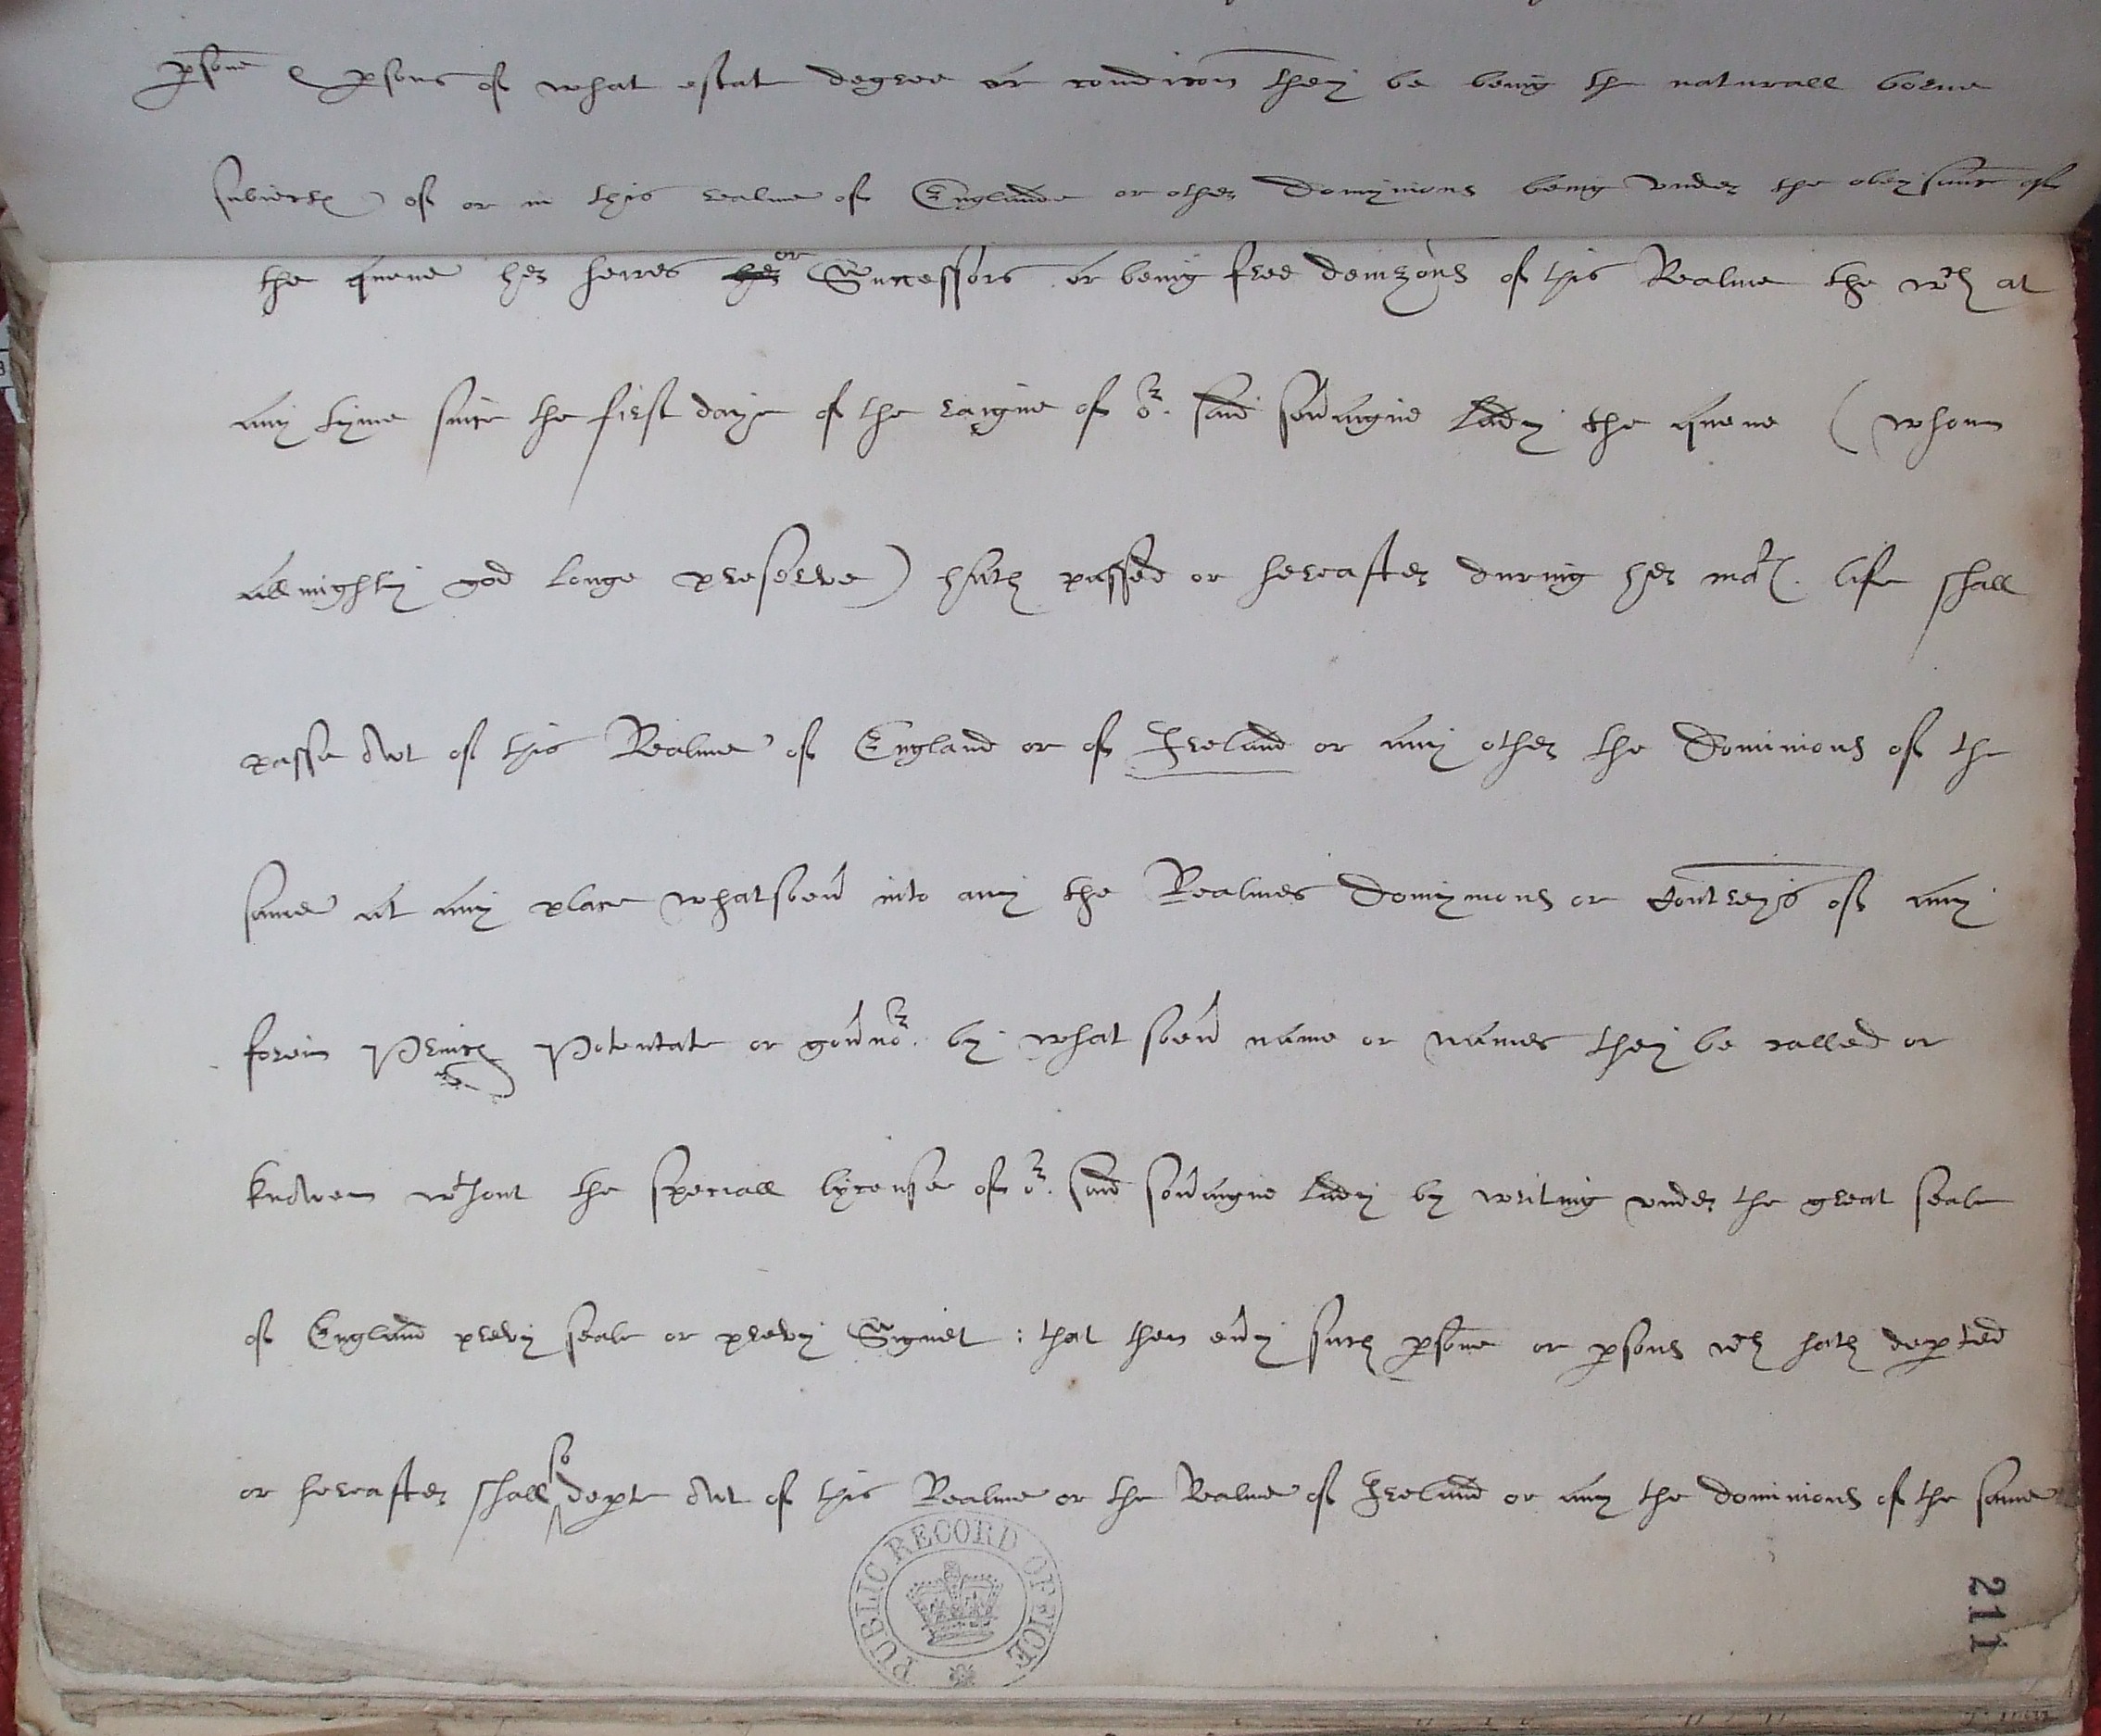 psone & psons of what estat degree or condicon they be being the naturall borne
subiects of or in this realme of Englande or other Domynions being under the obeysance of
the quene her heires her or Successors or being free denizons of this Realme the wch at
any tyme since the first daye of the raigne of or. said sovaigne Lady the quene ( whom
allmighty god longe preserve ) hath passed or hereafter during her mats. life shall
passe owt of this Realme of England or of Ireland or any other the Dominions of the
same at any place whatsoev into any the Realmes Domynions or Contreys of any
forein Prince Potentate or govnor. by what soev name or names they be called or
knowen wthout the speciall lycense of or. said sovaigne Lady by writing under the great seale
of England prevy seale or prevy Signet : that then evy such psone or psons wch hath depted
or hereafter shall so depte owt of this Realme or the Realme of Ireland or any the dominions of the same
PUBLIC RECORD OFFICE
211